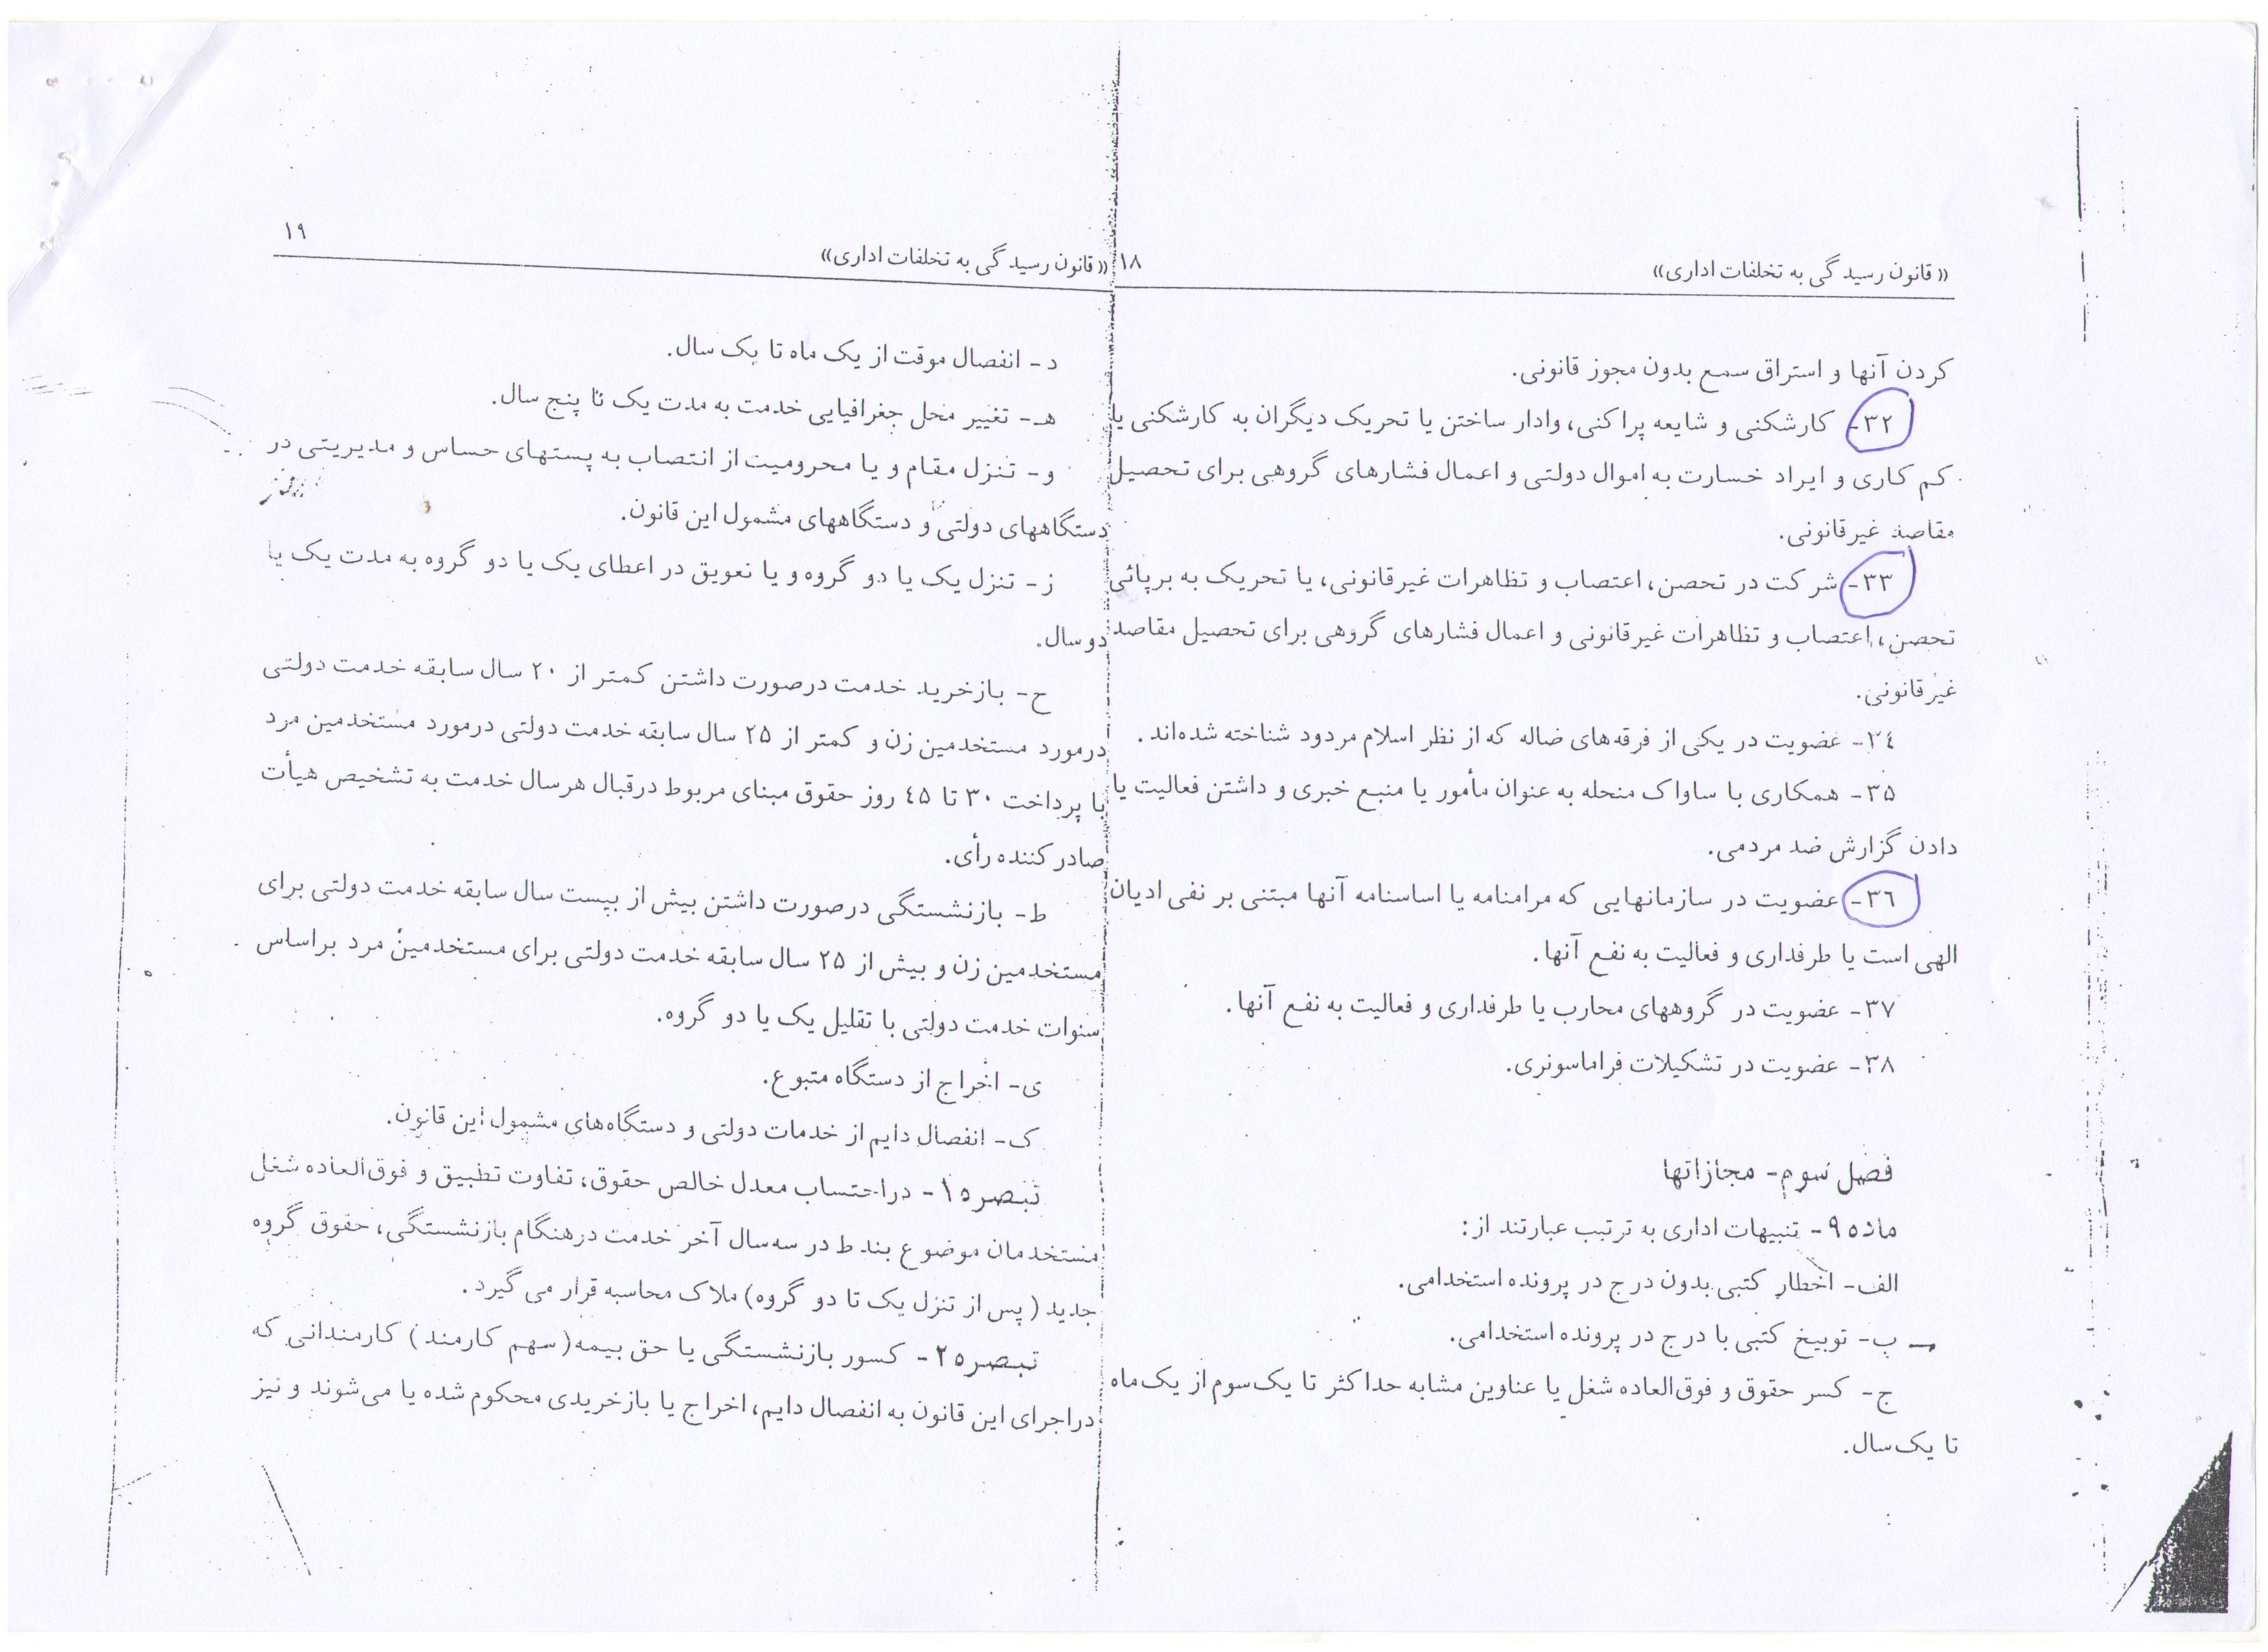 «قانون رسیدگی به تخلفات اداری» ۱۸
کردن آنها و استراق سمع بدون مجوز قانونی.
۳۲- کارشکنی و شایعه پراکنی، وادار ساختن یا تحریک دیگران به کارشکنی یا
کم کاری و ایراد خسارت به اموال دولتی و اعمال فشارهای گروهی برای تحصیل
مقاصد غیرقانونی.
۳۳- شرکت در تحصن، اعتصاب و تظاهرات غیرقانونی، یا تحریک به برپائی
تحصن، اعتصاب و تظاهرات غیرقانونی و اعمال فشارهای گروهی برای تحصیل مقاصد
غیرقانونی.
۳۴- عضویت در یکی از فرقه‌های ضاله که از نظر اسلام مردود شناخته شده‌اند.
۳۵- همکاری با ساواک منحله به عنوان مأمور یا منبع خبری و داشتن فعالیت یا
دادن گزارش ضد مردمی.
۳۶- عضویت در سازمانهایی که مرامنامه یا اساسنامه آنها مبتنی بر نفی ادیان
الهی است یا طرفداری و فعالیت به نفع آنها.
۳۷- عضویت در گروههای محارب یا طرفداری و فعالیت به نفع آنها.
۳۸- عضویت در تشکیلات فراماسونری.
فصل سوم- مجازاتها
ماده ۹- تنبیهات اداری به ترتیب عبارتند از:
الف- اخطار کتبی بدون درج در پرونده استخدامی.
ب- توبیخ کتبی با درج در پرونده استخدامی.
ج- کسر حقوق و فوق‌العاده شغل یا عناوین مشابه حداکثر تا یک‌سوم از یک‌ماه
تا یک‌سال.
«قانون رسیدگی به تخلفات اداری» ۱۹
د- انفصال موقت از یک ماه تا یک سال.
هـ- تغییر محل جغرافیایی خدمت به مدت یک تا پنج سال.
و- تنزل مقام و یا محرومیت از انتصاب به پستهای حساس و مدیریتی در
دستگاههای دولتی و دستگاههای مشمول این قانون.
ز- تنزل یک یا دو گروه و یا تعویق در اعطای یک یا دو گروه به مدت یک یا
دو سال.
ح- بازخرید خدمت درصورت داشتن کمتر از ۲۰ سال سابقه خدمت دولتی
درمورد مستخدمین زن و کمتر از ۲۵ سال سابقه خدمت دولتی درمورد مستخدمین مرد
با پرداخت ۳۰ تا ۴۵ روز حقوق مبنای مربوط درقبال هرسال خدمت به تشخیص هیأت
صادر کننده رأی.
ط- بازنشستگی درصورت داشتن بیش از بیست سال سابقه خدمت دولتی برای
مستخدمین زن و بیش از ۲۵ سال سابقه خدمت دولتی برای مستخدمین مرد براساس
سنوات خدمت دولتی با تقلیل یک یا دو گروه.
ی- اخراج از دستگاه متبوع.
ک- انفصال دایم از خدمات دولتی و دستگاه‌های مشمول این قانون.
تبصره ۱- دراحتساب معدل خالص حقوق، تفاوت تطبیق و فوق‌العاده شغل
مستخدمان موضوع بند ط در سه‌سال آخر خدمت درهنگام بازنشستگی، حقوق گروه
جدید (پس از تنزل یک تا دو گروه) ملاک محاسبه قرار می‌گیرد.
تبصره ۲- کسور بازنشستگی یا حق بیمه (سهم کارمند) کارمندانی که
دراجرای این قانون به انفصال دایم، اخراج یا بازخریدی محکوم شده یا می‌شوند و نیز